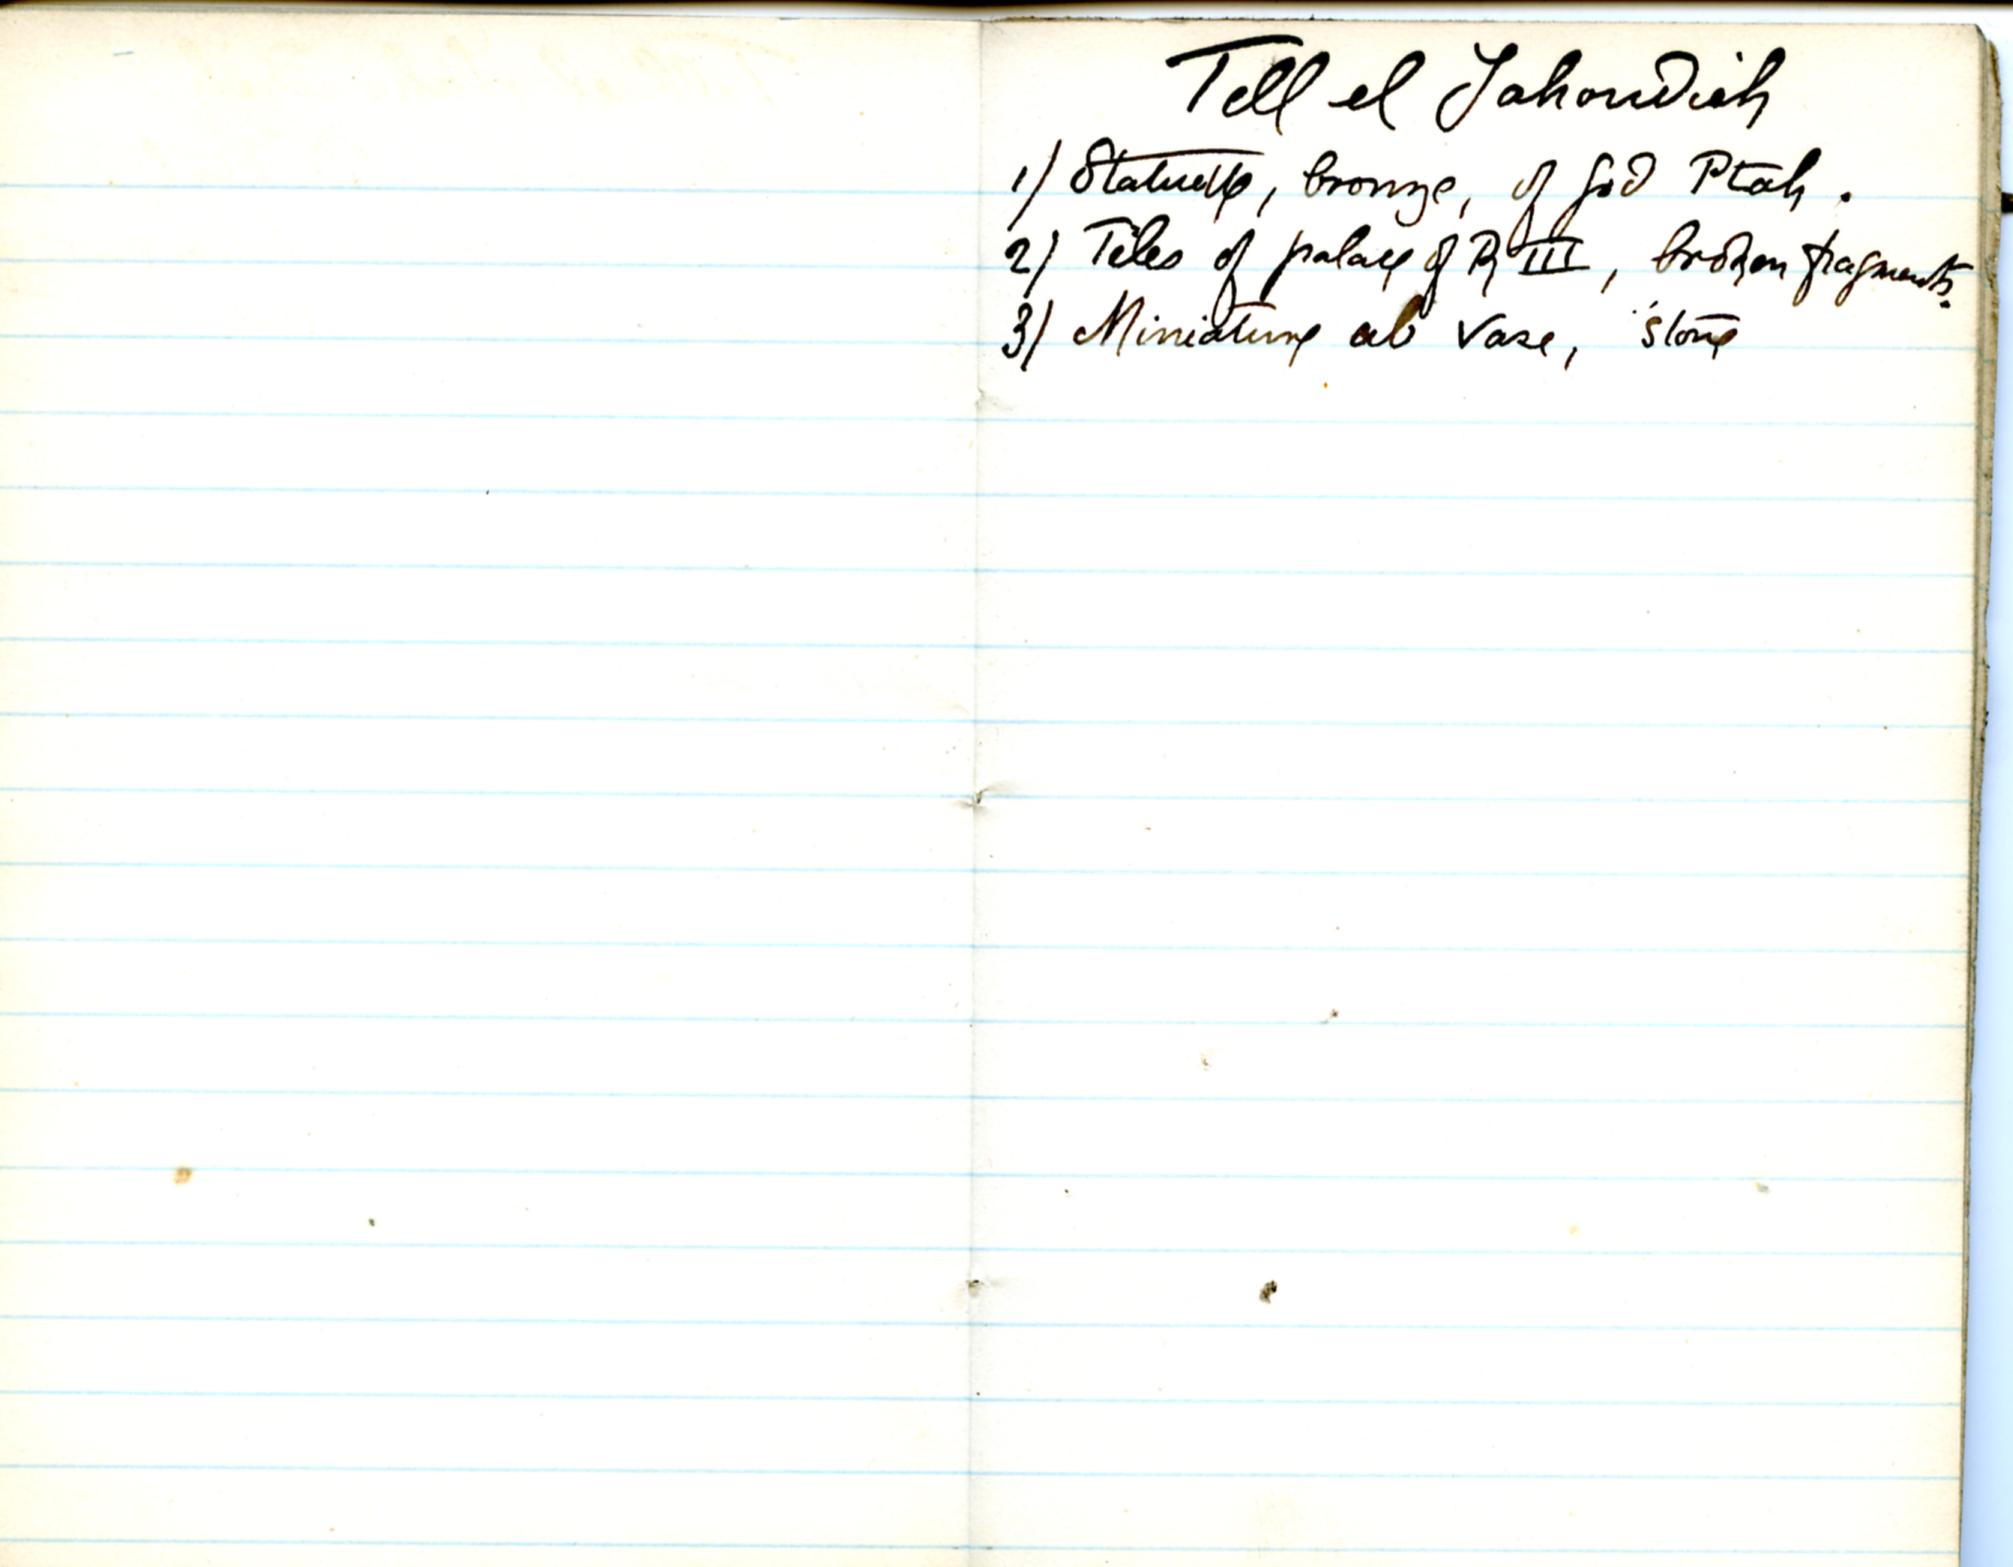 Tell el Yahoudieh
1) Statuette, bronze, of god Ptah.
2) Tiles of palace of R III, broken fragments.
3) Miniature ab vase, stone